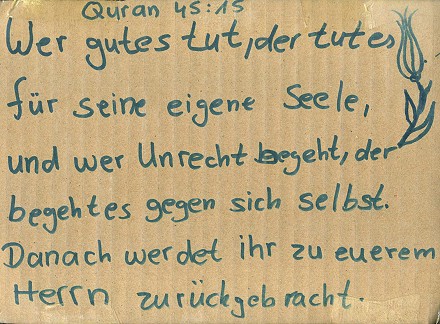 Quran 45:15
Wer gutes tut, der tut es
für seine eigene Seele,
und wer Unrecht begeht, der
begeht es gegen sich selbst.
Danach werdet ihr zu euerem
Herrn zurückgebracht.